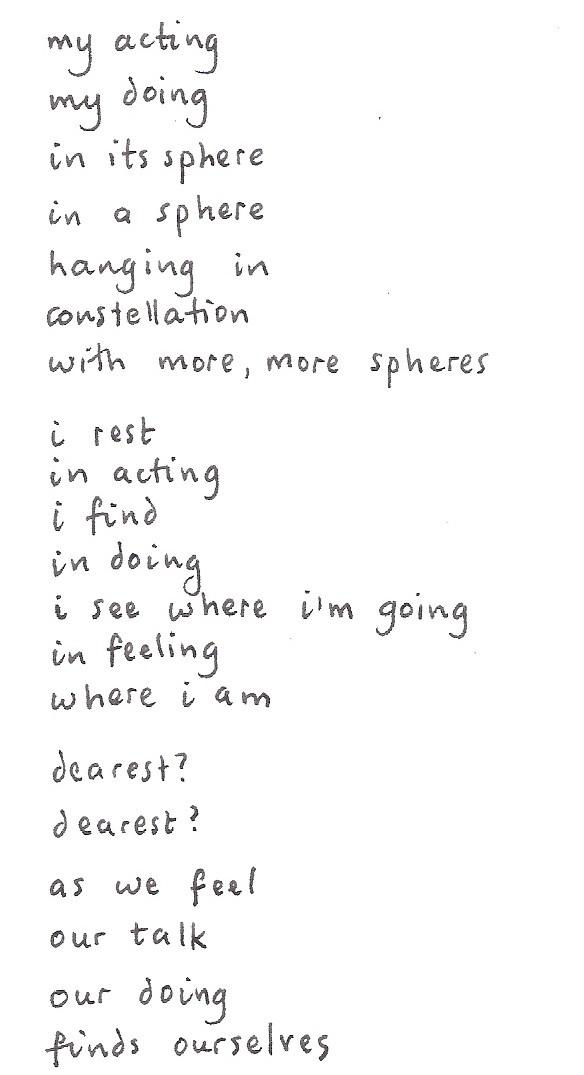 my acting
my doing
in its sphere
in a sphere
hanging in
constellation
with more, more spheres
i rest
in acting
i find
in doing
i see where i'm going
in feeling
where i am
dearest?
dearest?
as we feel
our talk
our doing
finds ourselves